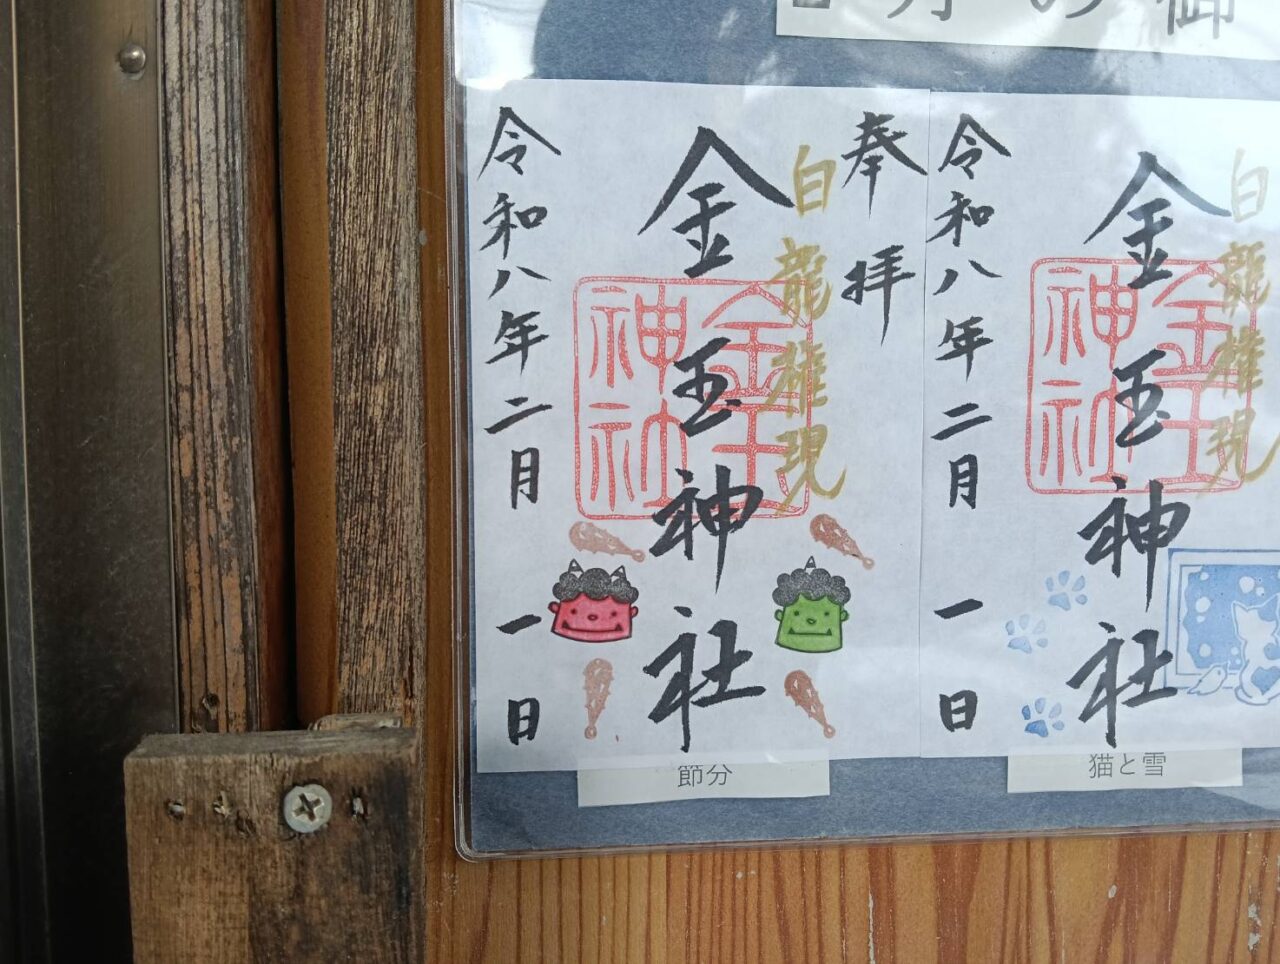 月の御
奉拝
白龍権現
金玉神社
金玉神社
令和八年二月一日
節分
白龍権現
金玉神社
金玉神社
令和八年二月一日
猫と雪